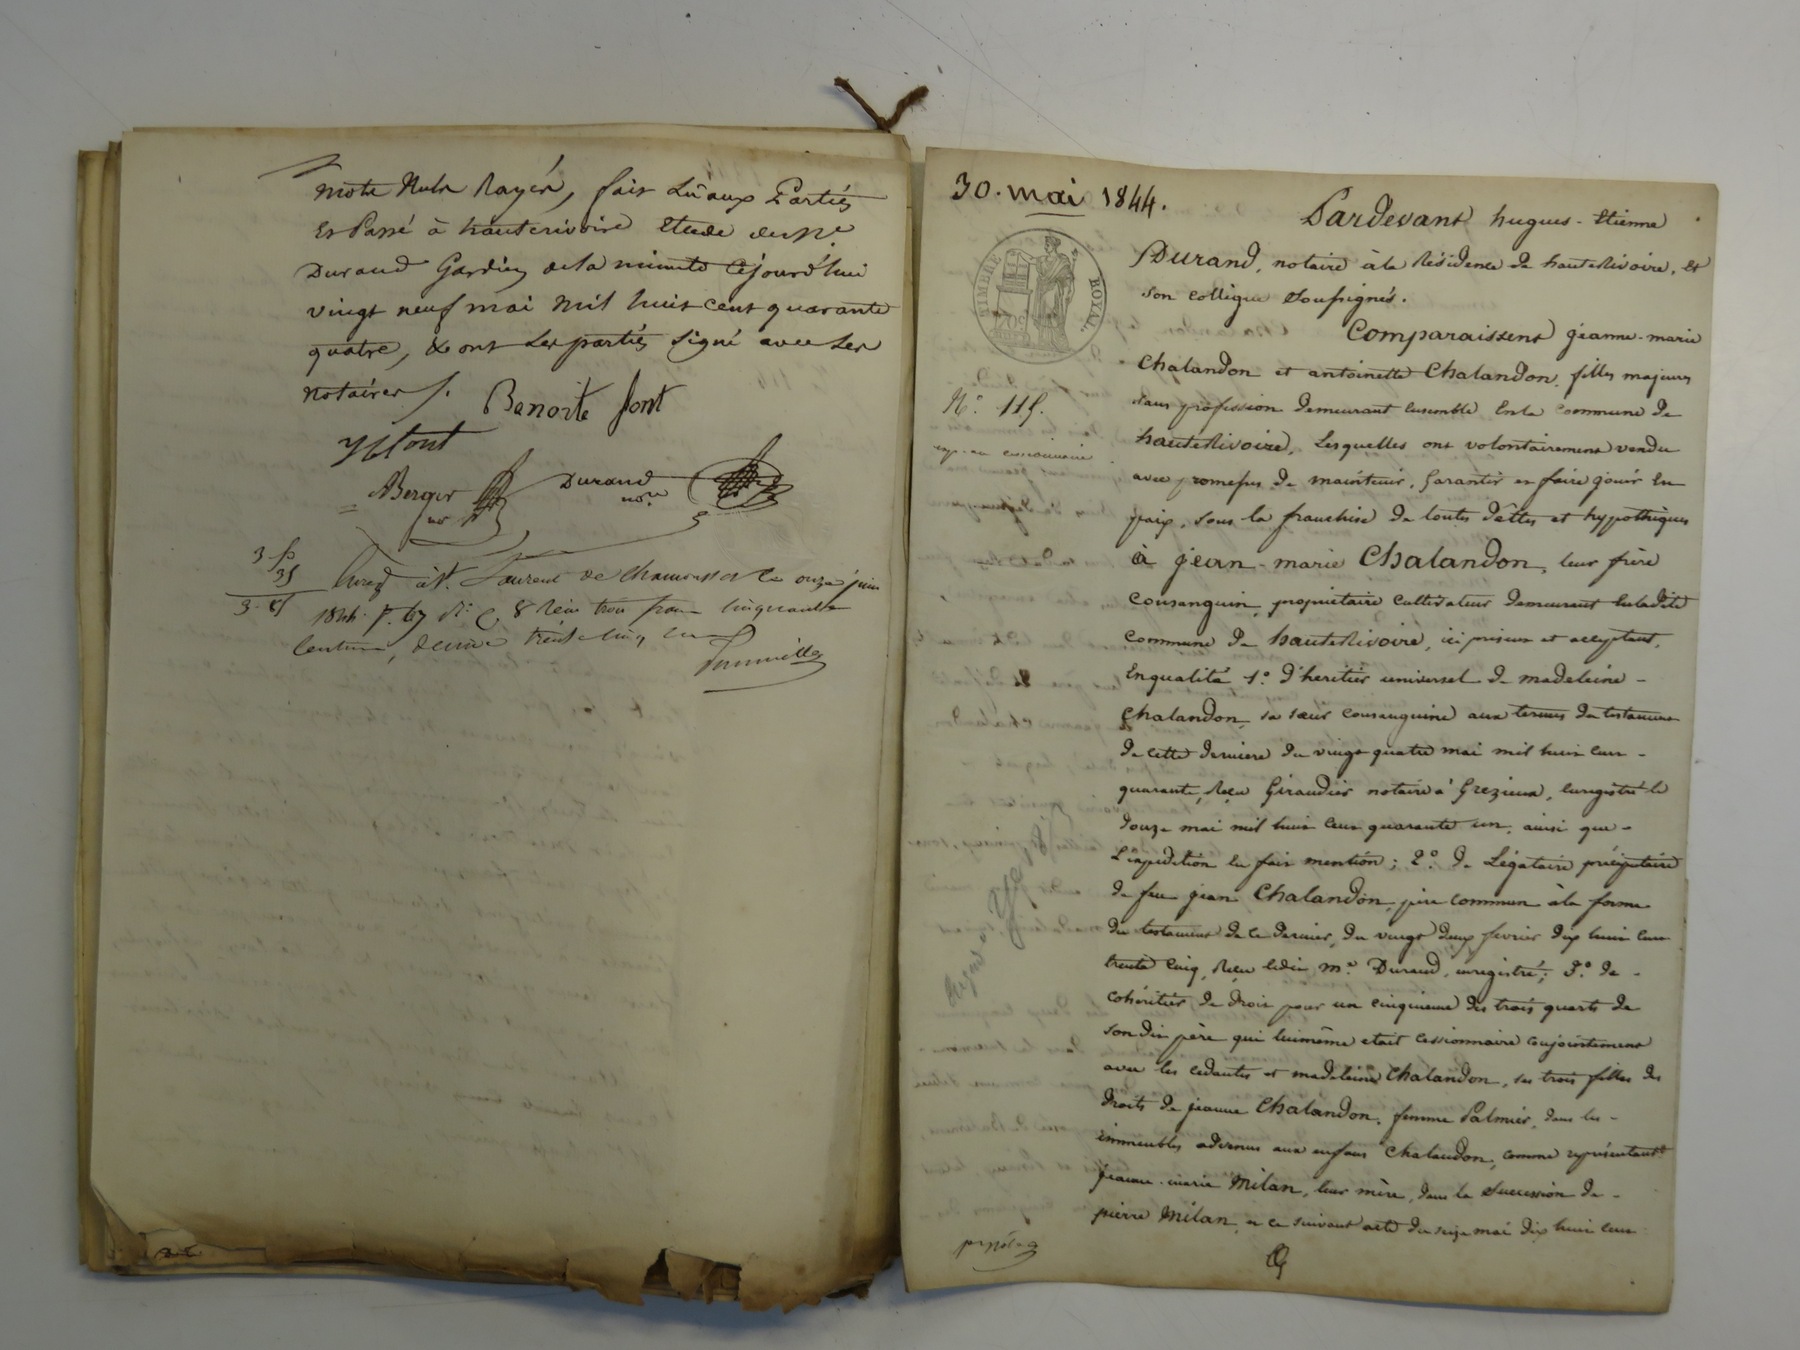 mots nuls rayés, fait lu aux Parties
et Passé à hauterivoire Etude du Me
Durand Gardien de la minute cejourd'hui
vingt neuf mai mil huit cent quarante
quatre, & ont les parties signé avec les
notaires /.
Benoite font
Berger
nre
Durand
nore
3 f
35
3-85
Enreg à St. Laurent de chamousset le onze juin
1844. f. 67 Ro C 8 Reçu trois francs cinquante
centimes, decime trente cinq cent
30. mai 1844.
TIMBRE ROYAL
No. 115.
Pardevant hugues-Etienne
Durand, notaire à la Résidence de hauteRivoire, et
son collègue Soussignés.
Comparaissent jeanne-marie
Chalandon et antoinette Chalandon, filles majeures
sans profession demeurant ensemble En la commune de
hauteRivoire, Lesquelles ont volontairement vendu
avec promesse de maintenir, Garantir et faire jouir En
paix, sous la franchise de toutes dèttes et hypothèques
à jean-marie Chalandon, leur frère
consanguin, propriétaire cultivateur demeurant Enladite
commune de hauteRivoire, ici présent et acceptant,
Enqualité 1o. d'heritier universel de madeleine -
Chalandon, sa sœur consanguine aux termes du testament
de cette derniere du vingt quatre mai mil huit cent -
quarante, Reçu Giraudier notaire à Grezieux, Enregistré le
douze mai mil huit cent quarante un, ainsi que -
L'expedition en fait mention ; 2o. de Légataire préciputaire
de feu jean Chalandon, père commun à la forme
du testament de ce dernier, du vingt deux fevrier dix huit cent
trente cinq, Reçu ledit me. Durand, enregistré ; 3o. de -
cohéritier de droit pour un cinquieme des trois quarts de
son dit père qui luimême etait cessionnaire conjointement
avec les cedantes et madeleine Chalandon, ses trois filles des
droits de jeanne Chalandon, femme Palmier, dans les -
immeubles advenus aux enfans Chalandon, comme représentant
jeanne-marie Milan, leur mère, dans la Succession de -
pierre Milan, et ce suivant acte du seize mai dix huit cent